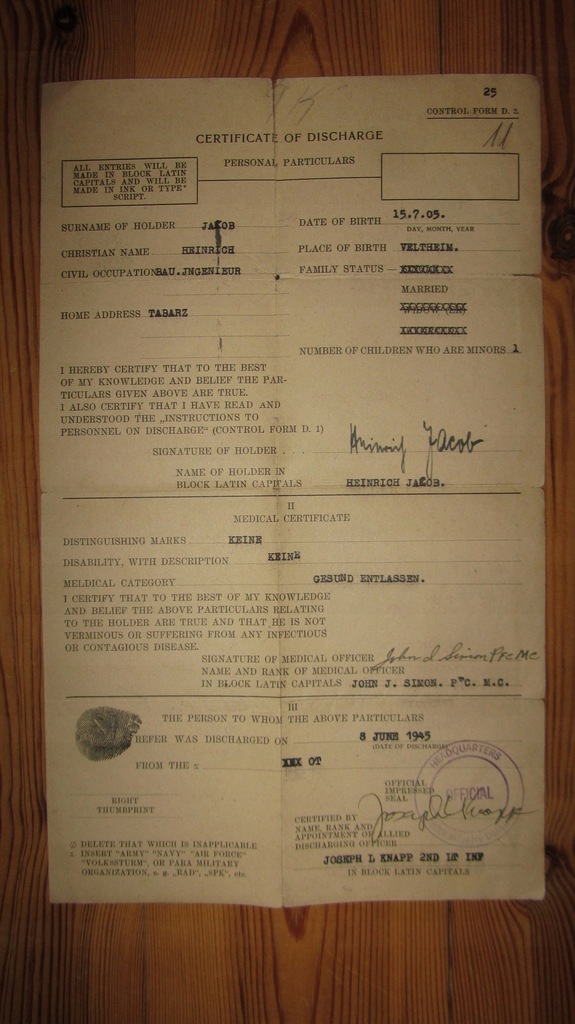 25
CONTROL FORM D. 2.
11
CERTIFICATE OF DISCHARGE
ALL ENTRIES WILL BE
MADE IN BLOCK LATIN
CAPITALS AND WILL BE
MADE IN INK OR TYPE-
SCRIPT.
PERSONAL PARTICULARS
SURNAME OF HOLDER JACOB
DATE OF BIRTH 15.7.05.
DAY, MONTH, YEAR
CHRISTIAN NAME HEINRICH
PLACE OF BIRTH VELTHEIM.
CIVIL OCCUPATION BAU.JNGENIEUR
FAMILY STATUS —
MARRIED
HOME ADDRESS TABARZ
NUMBER OF CHILDREN WHO ARE MINORS 1
I HEREBY CERTIFY THAT TO THE BEST
OF MY KNOWLEDGE AND BELIEF THE PAR-
TICULARS GIVEN ABOVE ARE TRUE.
I ALSO CERTIFY THAT I HAVE READ AND
UNDERSTOOD THE „INSTRUCTIONS TO
PERSONNEL ON DISCHARGE" (CONTROL FORM D. 1)
SIGNATURE OF HOLDER . . . Heinrich Jacob
NAME OF HOLDER IN
BLOCK LATIN CAPITALS HEINRICH JACOB.
II
MEDICAL CERTIFICATE
DISTINGUISHING MARKS KEINE
DISABILITY, WITH DESCRIPTION KEINE
MELDICAL CATEGORY GESUND ENTLASSEN.
I CERTIFY THAT TO THE BEST OF MY KNOWLEDGE
AND BELIEF THE ABOVE PARTICULARS RELATING
TO THE HOLDER ARE TRUE AND THAT HE IS NOT
VERMINOUS OR SUFFERING FROM ANY INFECTIOUS
OR CONTAGIOUS DISEASE.
SIGNATURE OF MEDICAL OFFICER John J Simon Pfc MC
NAME AND RANK OF MEDICAL OFFICER
IN BLOCK LATIN CAPITALS JOHN J. SIMON. PFC. M.C.
III
THE PERSON TO WHOM THE ABOVE PARTICULARS
REFER WAS DISCHARGED ON 8 JUNE 1945
(DATE OF DISCHARGE)
FROM THE x OT
RIGHT
THUMBPRINT
OFFICIAL
IMPRESSED
SEAL
HEADQUARTERS
OFFICIAL
CERTIFIED BY Joseph L Knapp
NAME, RANK AND
APPOINTMENT OF ALLIED
DISCHARGING OFFICER
JOSEPH L KNAPP 2ND LT INF
IN BLOCK LATIN CAPITALS
∅ DELETE THAT WHICH IS INAPPLICABLE
x INSERT "ARMY" "NAVY" "AIR FORCE"
"VOLKSSTURM", OR PARA MILITARY
ORGANIZATION, e. g. „RAD", „SPK", etc.